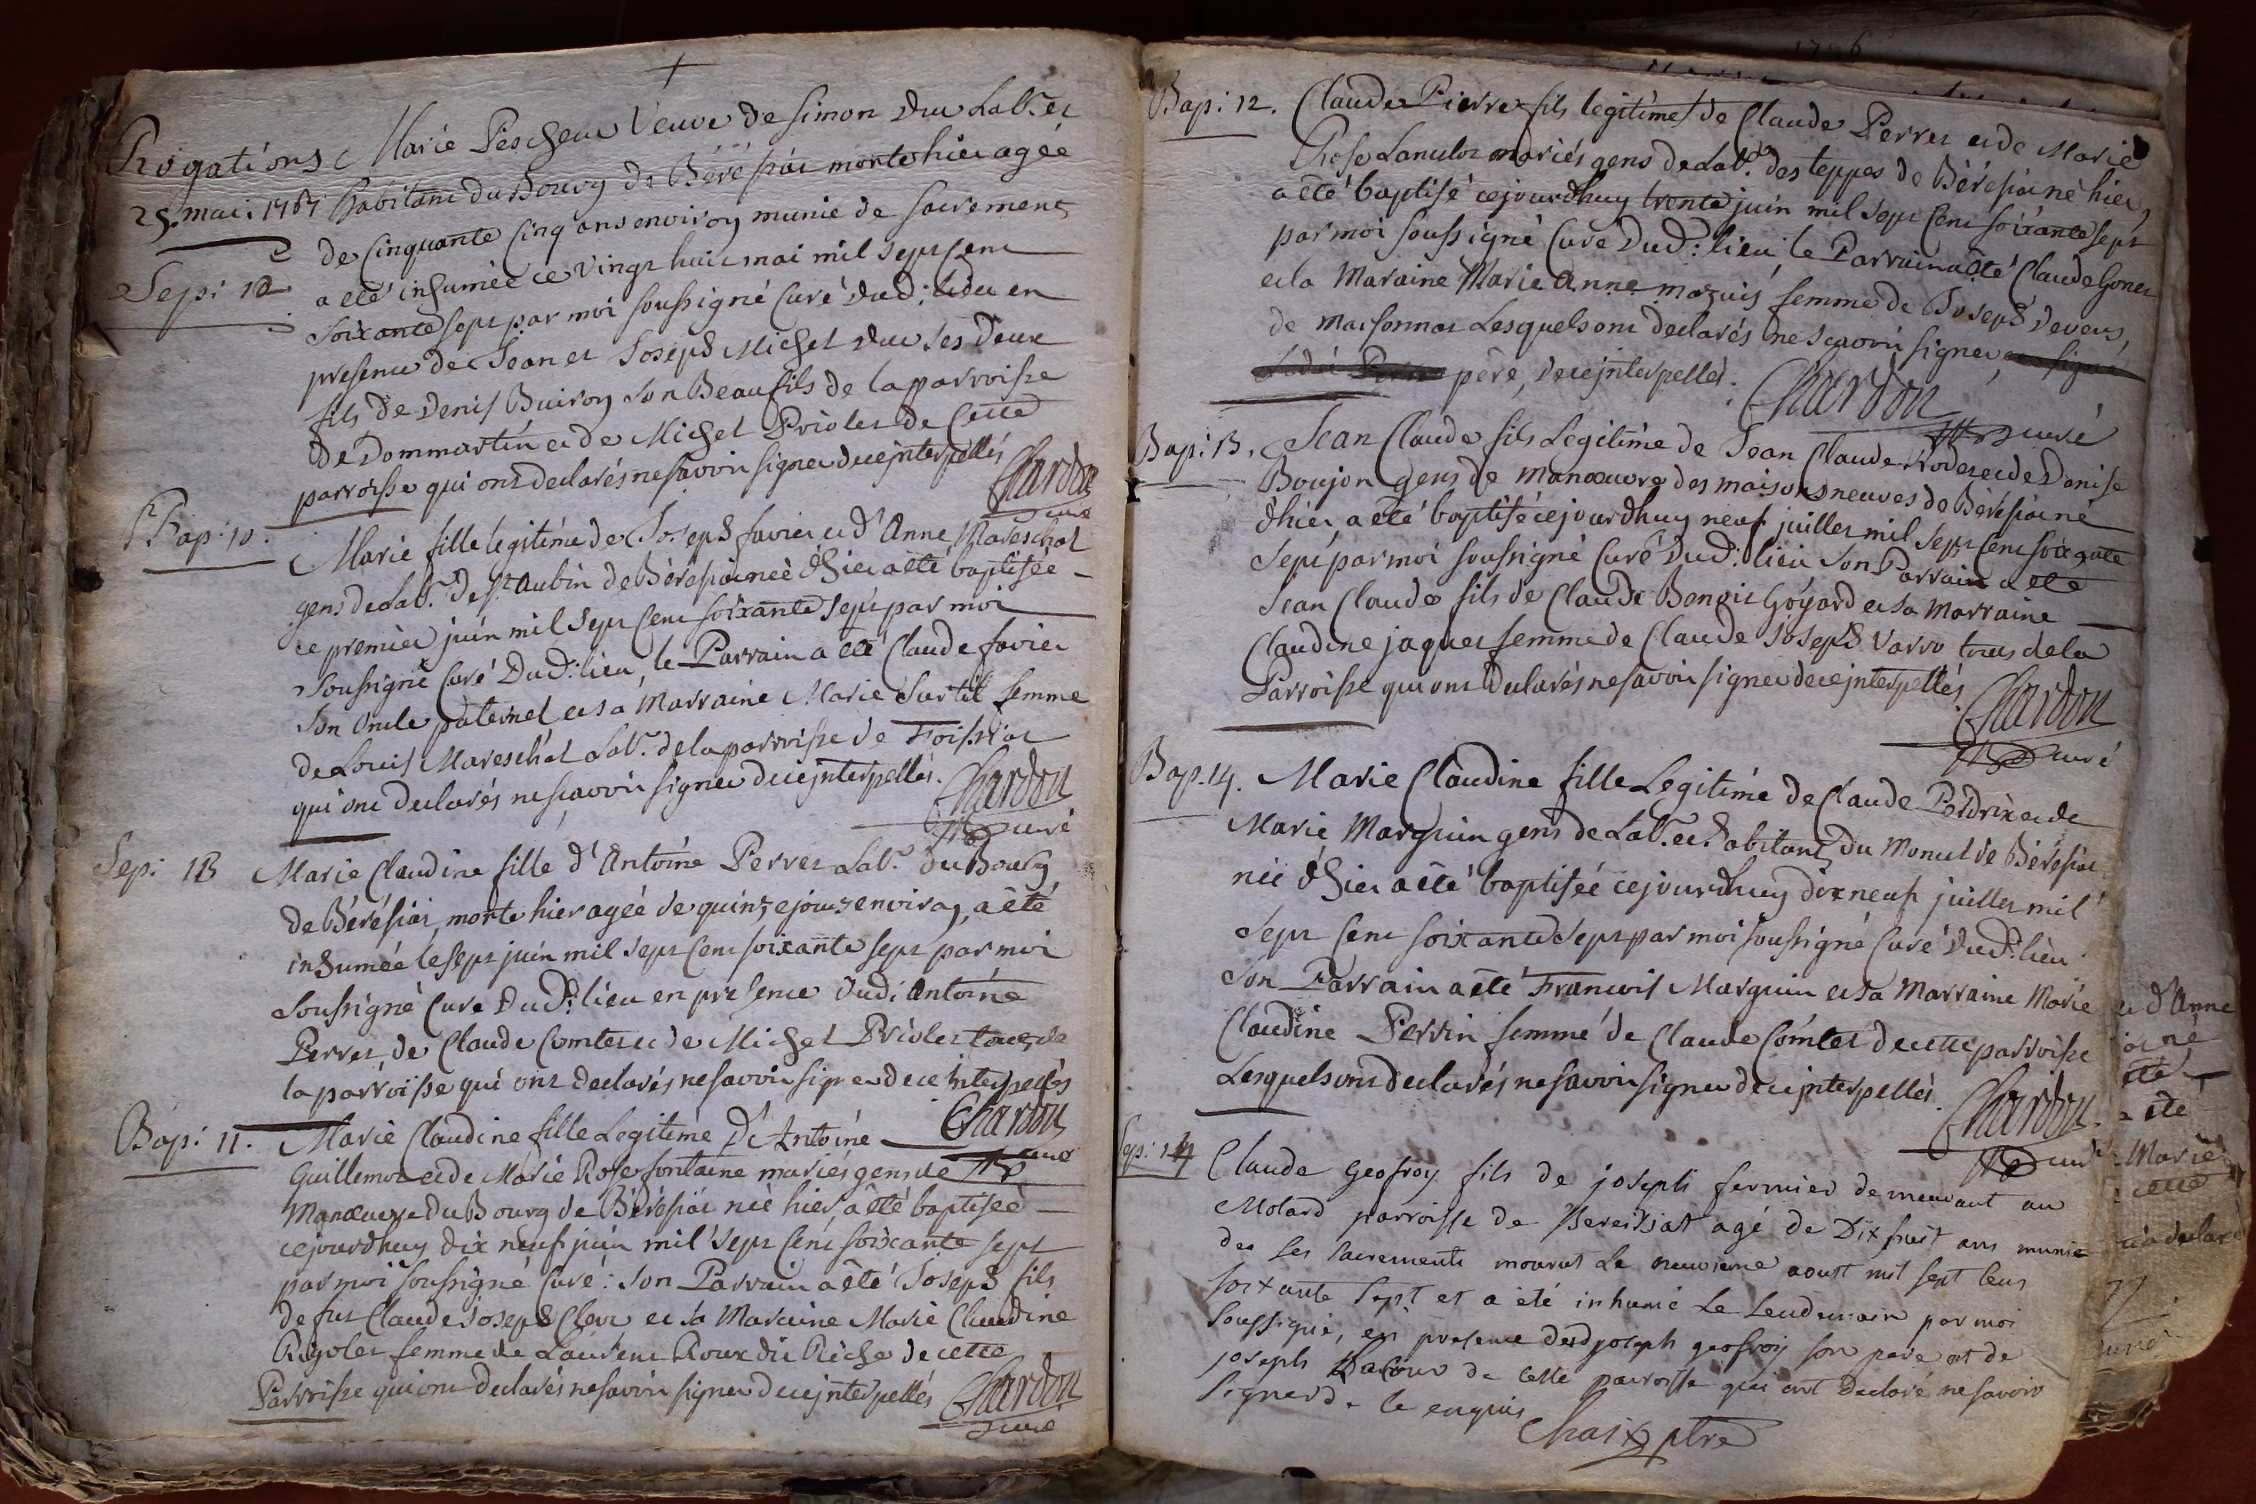 Rogations
25. mai 1767
Sepi: 12
Marie Pescheu Veuve de Simon Duc Lab.r et
habitant du Bourg de Béréſiàt morte hier agée
de Cinquante Cinq ans environ munie de sacrements
a eté inhumée ce Vingt huit mai mil sept Cent
soixante sept par moi soussigné Curé dud: lieu en
presence de Jean et Joseph Michel Duc ses deux
fils de Denis Buiron son Beau fils de la parroisse
de Dommartin et de Michel Priolet de Cette
parroisse qui ont declarés ne savoir signer de ce jnterpellés
Chardon
curé
Bap: 10.
Marie fille legitime de Joseph favier et d'Anne Mareschal
gens de Lab.r de St Aubin de Béréſiàt née d'hier a eté baptisée
ce premier juin mil sept Cent soixante sept par moi
soussigné Curé Dud: lieu, le Parrain a eté Claude favier
son oncle paternel et sa Marraine Marie Surtil femme
de Louis Mareschal Lab.r de la parroisse de Foissiat
qui ont declarés ne scavoir signer de ce jnterpellés.
Chardon
curé
Sep: 13
Marie Claudine fille d'Antoine Perret Lab.r du Bourg
de Béréſiàt, morte hier agée de quinze jours environ, a eté
inhumée le sept juin mil sept Cent soixante sept par moi
soussigné Curé Dud: lieu en presence dud: Antoine
Perret, de Claude Comtet et de Michel Priolet tous de
la parroisse qui ont declarés ne savoir signer de ce jnterpellés
Chardon
curé
Bap: 11.
Marie Claudine fille Legitime D'Antoine
Guillemot et de Marie Rose fontaine mariés gens de
Manœuvre Du Bourg de Béréſiàt née hier a eté baptisée
cejourdhuy dix neuf juin mil sept Cent soixante sept
par moi soussigné Curé: son Parrain a eté Joseph fils
de fut Claude Joseph Clerc et sa Maraine Marie Claudine
Rigolet femme de Laurent Roux dit Riche de cette
Parroisse qui ont declarés ne savoir signer de ce jnterpellés
Chardon
curé
Bap: 12.
Claude Pierre fils legitime de Claude Perret et de Marie
Rose Lanulot mariés gens de Lab.r des teppes de Béréſiàt né hier,
a eté baptisé cejourdhuy trente juin mil sept Cent soixante sept
par moi soussigné Curé Dud: lieu, le Parrain a eté Claude Gonet
et la Maraine Marie Anne mazuis femme de Joseph devens,
de Marsonnas Lesquels ont declarés ne scavoir signer,
père, de ce jnterpellés.
Chardon
curé
Bap: 13.
Jean Claude fils Legitime de Jean Claude Rodet et de Denise
Boujon gens de manœuvre des maisons neuves de Béréſiàt né
d'hier a eté baptisé cejourdhuy neuf juillet mil sept Cent soixante
sept par moi soussigné Curé Dud: lieu son Parrain a eté
Jean Claude fils de Claude Benoit Goyard et sa Marraine
Claudine jaquet femme de Claude Joseph Varro tous de la
Parroisse qui ont declarés ne savoir signer de ce jnterpellés
Chardon
curé
Bap. 14.
Marie Claudine fille Legitime de Claude Perdrix et de
Marie Marguin gens de Lab.r et habitants du Monut de Béréſiàt
née d'hier a eté baptisée cejourdhuy dix neuf juillet mil
sept Cent soixante sept par moi soussigné Curé Dud: lieu
son Parrain a eté Francois Marguin et sa Marraine Marie
Claudine Perrin femme de Claude Comtet de cette parroisse
Lesquels ont declarés ne savoir signer de ce jnterpellés.
Chardon
curé
Sep: 14
Claude Geofroy fils de joseph fermier demeurant au
Molard parroisse de Bereissiat agé de Dixhuit ans munie
des les sacrements mourut Le neuvieme aoust mil sept cens
soixante sept et a été inhumé Le lendemain par moi
soussigné, en presence dudt joseph geofroy son pere et de
joseph de cette parroisse qui ont declaré ne savoir
signer d. ce enquis
Chaix ptre